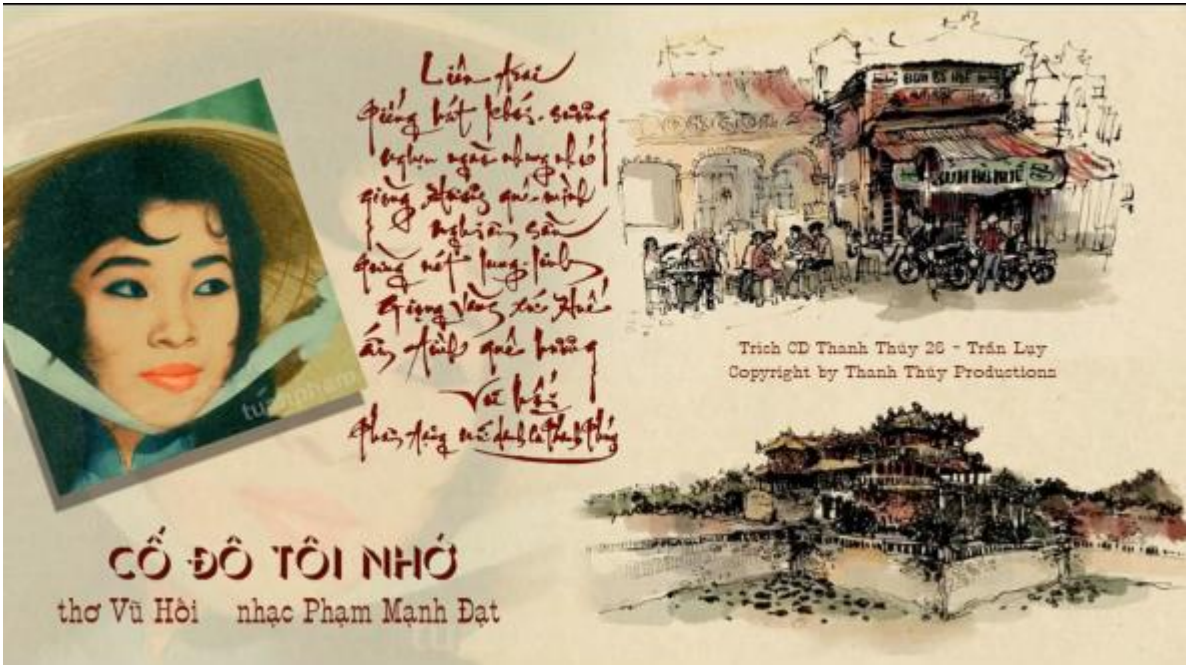 Liêu trai
Tiếng hát khói-sương
nghìn ngàn nhung nhớ
giòng Hương quê-mình
Nghị âm
nét lung-linh
Giọng vàng xứ Huế
ấm tình quê hương
Vũ hối
danh ca Thanh Thúy
BÚN BÒ HUẾ
BÚN BÒ HUẾ
Trích CD Thanh Thúy 26 - Trần Lụy
Copyright by Thanh Thúy Productions
tuấnpham
CỐ ĐÔ TÔI NHỚ
thơ Vũ Hối nhạc Phạm Mạnh Đạt